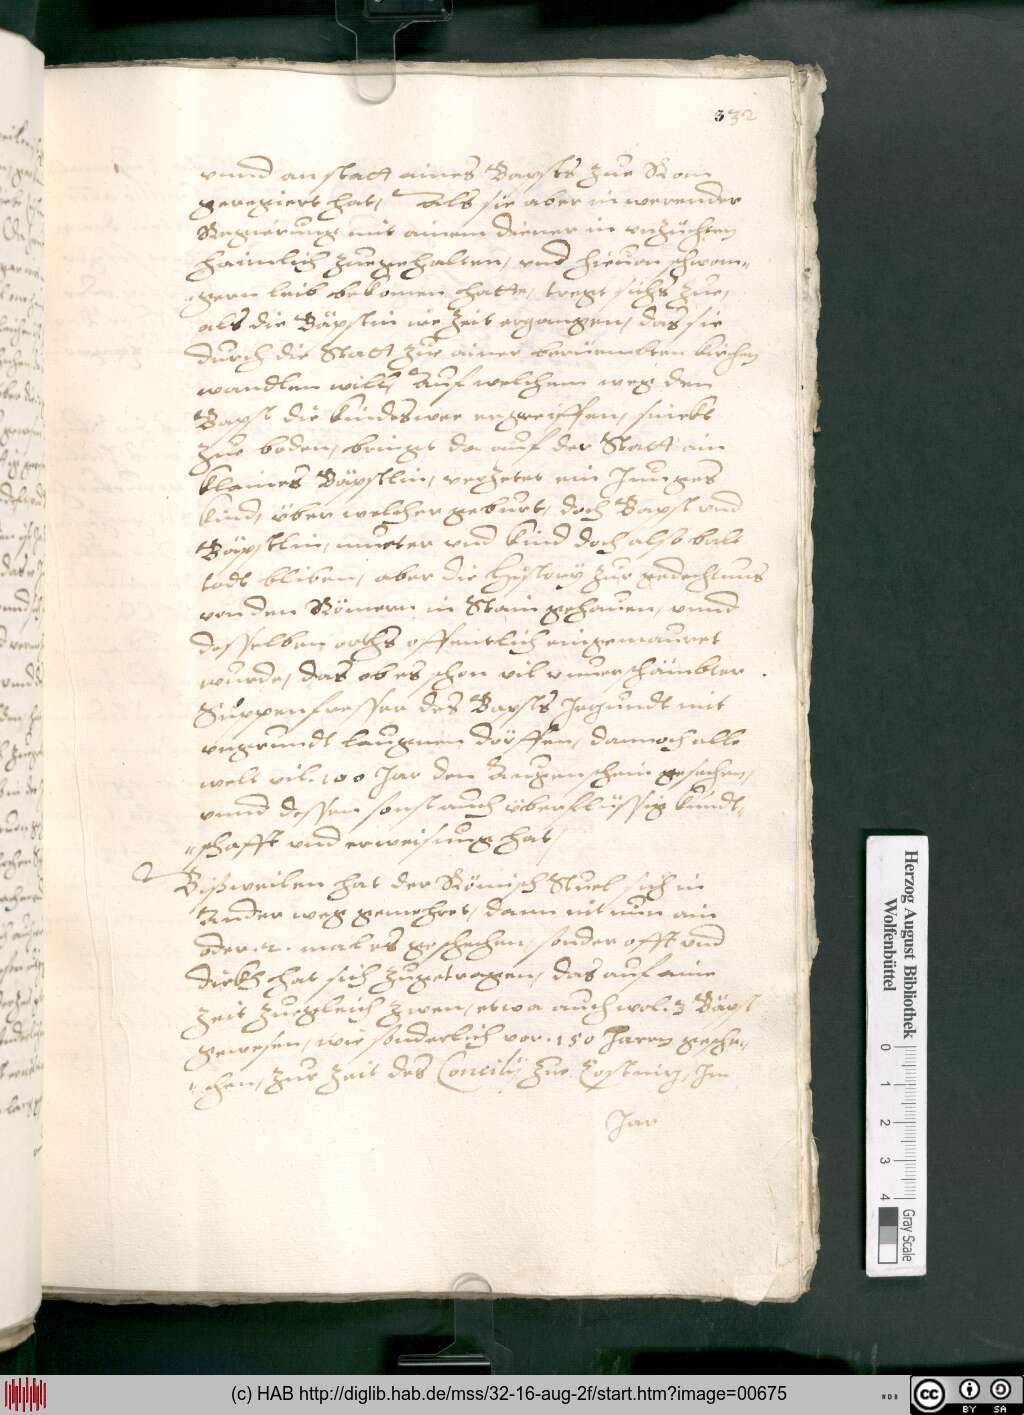 332
vnnd an statt aines Bapsts zue Rom
geregiert hat, Als sie aber in werender
Regierung mit ainem diener in vnzüchten
haimlich zuegehalten, vnd hieuon schwan-
gern leib bekomen hatte, tregt sichs zue,
als die Bäpstin ir Zeit ergangen, das sie
durch die Statt zue ainer berüembten kirchen
wandlen will, Auf welchem weg den
Bapst die kindeswee ergreiffen, sinckt
zue boden, bringt da auf der Statt ain
klaines Bäpstlin, ein Junges
kind, über welcher geburt, doch Bapst vnd
Bäpstlin, mueter vnd kind doch also balt
todt bliben, aber die History zur gedechtnus
von den Römern in Stain gehauen, vnnd
desselben orths offentlich eingemauret
wurde, das ob es schon vil vnuerschämbter
Suppenfresser des Bapsts Jezundt mit
vngrundt laugnen dörffen, dannoch alle
welt vil 100 Jar den Augenschein gesechen,
vnnd dessen sonst auch überflüssig kundt-
schafft vnd erweisung hat,
Bißweilen hat der Römisch Stuel sich in
Ander weg gemehret, dann nit nun ain
oder .2. mal es geschechen, sonder offt vnd
dickh hat sich zugetragen, das auf aine
Zeit zuegleich zwen, etwa auch wol .3 Bäpst
gewesen, wie sonderlich vor .150 Jaren gesche-
chen, zur Zeit des Concilij zue Costnitz, Im
Jar
Herzog August Bibliothek
Wolfenbüttel
0 1 2 3 4
Gray Scale
(c) HAB http://diglib.hab.de/mss/32-16-aug-2f/start.htm?image=00675
WDB
cc BY SA